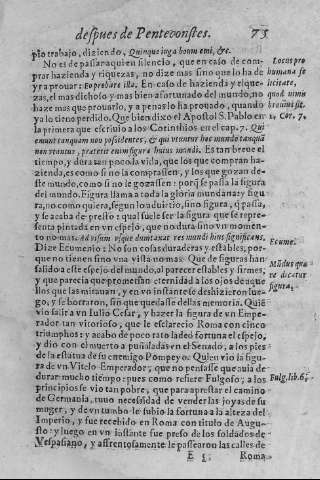 despues de Pentecostes. 75
pio trabajo, diziendo, Quinque iuga boum emi, &c.
No es de passar aqui en silencio, que en caso de com-
prar hazienda y riquezas, no dize mas sino que lo ha de
yr a prouar: Eo probare illa. En caso de hazienda y rique-
zas, el mas dichoso y mas bien afortunado del mundo, no
haze mas que prouarlo, y a penas lo ha prouado, quando
ya lo tiene perdido. Que bien dixo el Apostol S. Pablo en
la primera que escriuio a los Corinthios en el cap. 7. Qui
emunt tanquam non possidentes, & qui vtuntur hoc mundo tanquā
non vtantur, praterit enim figura huius mundi. Es tan breue el
tiempo, y dura tan poco la vida, que los que compran ha-
zienda, es como si no la comprassen, y los que gozan de-
ste mundo, como si no le gozassen: porq̃ se passa la figura
del mundo. Figura llama a toda la gloria mundana: y figu-
ra, no como quiera, segun lo aduirtio, sino figura, q̃ passa,
y se acaba de presto: qual suele ser la figura que se repre-
senta pintada en vn espejo, que no dura sino vn momen-
to no mas: Ad visum vsque dumtaxat res mundi huius significans,
Dize Ecumenio: No son cosas duraderas y estables, por-
que no tienen sino vna vista no mas. Que de figuras han
salido a este espejo del mundo, al parecer estables y firmes,
y que parecia que prometian eternidad a los ojos de aque-
llos que las mirauan, y en vn instante se deshizieron lue-
go, y se borraron, sin que quedasse dellas memoria. Quiē
vio salir a vn Iulio Cesar, y hazer la figura de vn Empe-
rador tan vitorioso, que le esclarecio Roma con cinco
triumphos: y acabo de poco rato la deo fortuna el espejo,
y dio con el muerto a puñaladas en el Senado, a los pies
de la estatua de su enemigo Pompeyo. Quien vio la figu-
ra de vn Vitelo Emperador, que no pensasse que auia de
durar mucho tiempo: pues como refiere Fulgoso; a los
principios se vio tan pobre, que para aprestar el camino
de Germania, tuuo necessidad de vender las joyas de su
muger, y de vn tumbo le subio la fortuna a la alteza del
Imperio, y fue recebido en Roma con titulo de Augu-
sto: y luego en vn instante fue preso de los soldados de
Vespasiano, y affrentosamente le passearon las calles de
E 5 Roma
Locus pro
humana fe
licitate,
quod nimis
breuis sit.
1. Cor. 7.
Ecume.
Mūdus qua
re dicatur
figura.
Fulg. lib. 6.